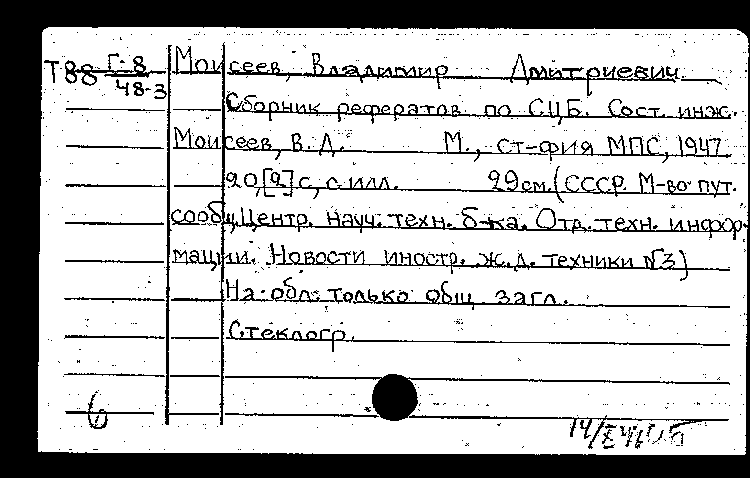 Т88 Г-8 Моисеев, Владимир Дмитриевич
48-3
Сборник рефератов по СЦБ. Сост. инж.
Моисеев, В. Д. М., ст-фия МПС, 1947.
20,[2] с, с илл. 29 см. (СССР. М-во пут.
сообщ. Центр. науч. техн. б-ка. Отд. техн. инфор-
мации. Новости иностр. ж.д. техники №3)
На обл: только общ. загл.
Стеклогр.
6